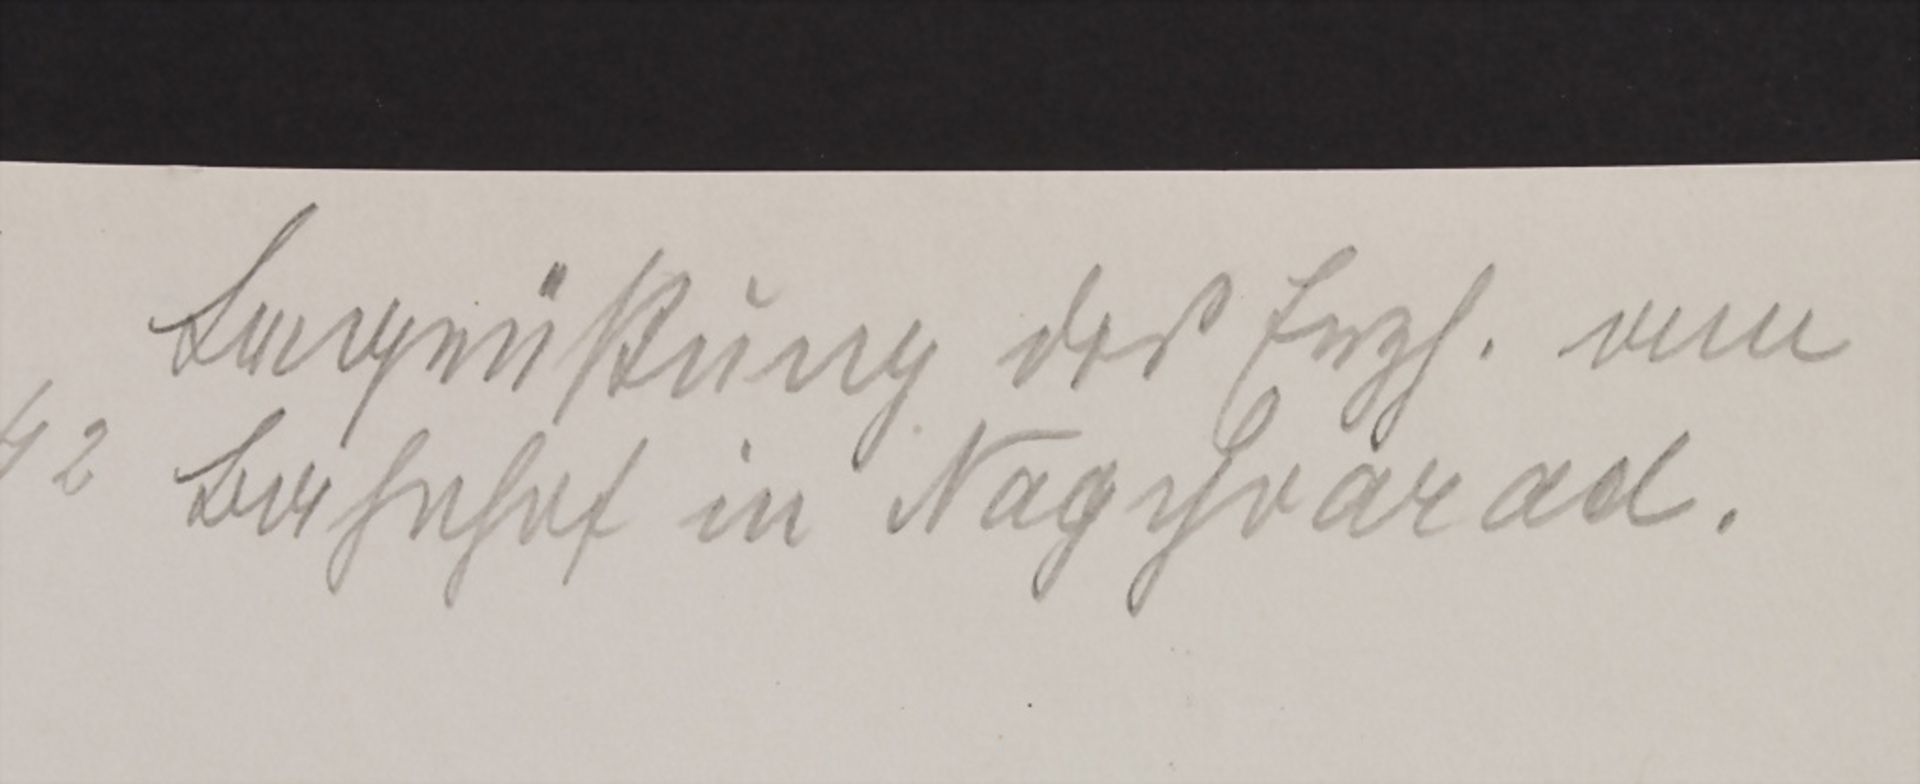 Begrüßung des Erzh. am
42 Bahnhof in Nagyvárad.